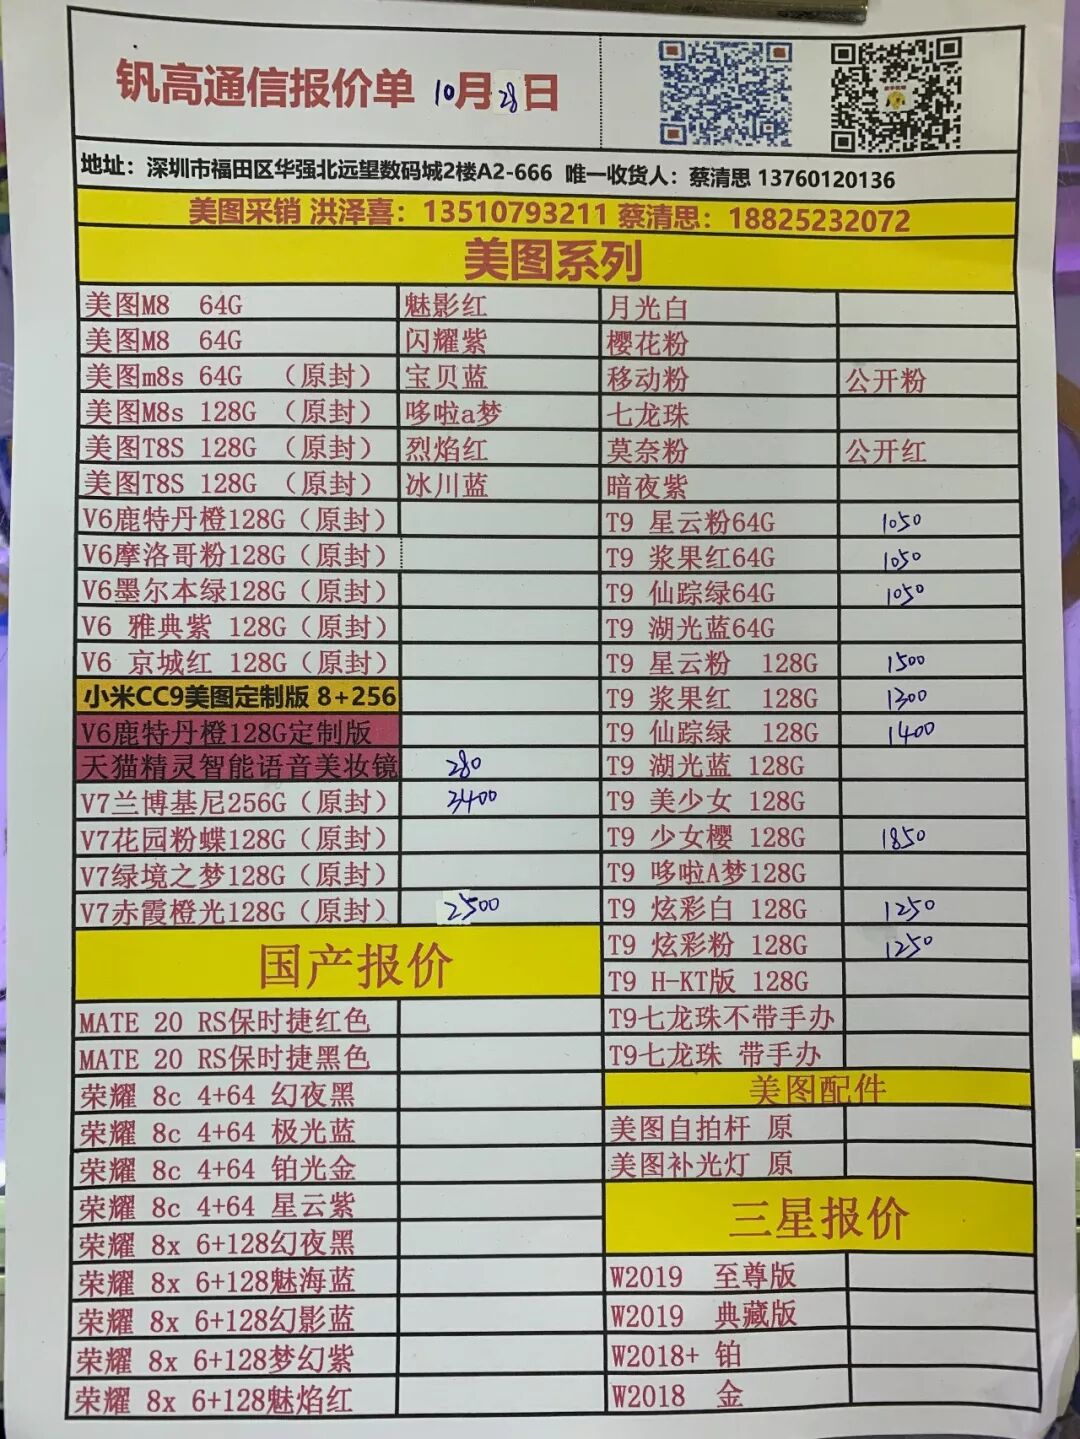 钒高通信报价单 10月28日
地址：深圳市福田区华强北远望数码城2楼A2-666 唯一收货人：蔡清思 13760120136
美图采销 洪泽喜：13510793211 蔡清思：18825232072
美图系列
美图M8 64G 魅影红 月光白
美图M8 64G 闪耀紫 樱花粉
美图m8s 64G （原封） 宝贝蓝 移动粉 公开粉
美图M8s 128G （原封） 哆啦a梦 七龙珠
美图T8S 128G （原封） 烈焰红 莫奈粉 公开红
美图T8S 128G （原封） 冰川蓝 暗夜紫
V6鹿特丹橙128G（原封） T9 星云粉64G 1050
V6摩洛哥粉128G（原封） T9 浆果红64G 1050
V6墨尔本绿128G（原封） T9 仙踪绿64G 1050
V6 雅典紫 128G（原封） T9 湖光蓝64G
V6 京城红 128G（原封） T9 星云粉 128G 1500
小米CC9美图定制版 8+256 T9 浆果红 128G 1300
V6鹿特丹橙128G定制版 T9 仙踪绿 128G 1400
天猫精灵智能语音美妆镜 280 T9 湖光蓝 128G
V7兰博基尼256G（原封） 3400 T9 美少女 128G
V7花园粉蝶128G（原封） T9 少女樱 128G 1850
V7绿境之梦128G（原封） T9 哆啦A梦128G
V7赤霞橙光128G（原封） 2500 T9 炫彩白 128G 1250
国产报价
T9 炫彩粉 128G 1250
T9 H-KT版 128G
MATE 20 RS保时捷红色 T9七龙珠不带手办
MATE 20 RS保时捷黑色 T9七龙珠 带手办
荣耀 8c 4+64 幻夜黑 美图配件
荣耀 8c 4+64 极光蓝 美图自拍杆 原
荣耀 8c 4+64 铂光金 美图补光灯 原
荣耀 8c 4+64 星云紫
三星报价
荣耀 8x 6+128幻夜黑
荣耀 8x 6+128魅海蓝 W2019 至尊版
荣耀 8x 6+128幻影蓝 W2019 典藏版
荣耀 8x 6+128梦幻紫 W2018+ 铂
荣耀 8x 6+128魅焰红 W2018 金